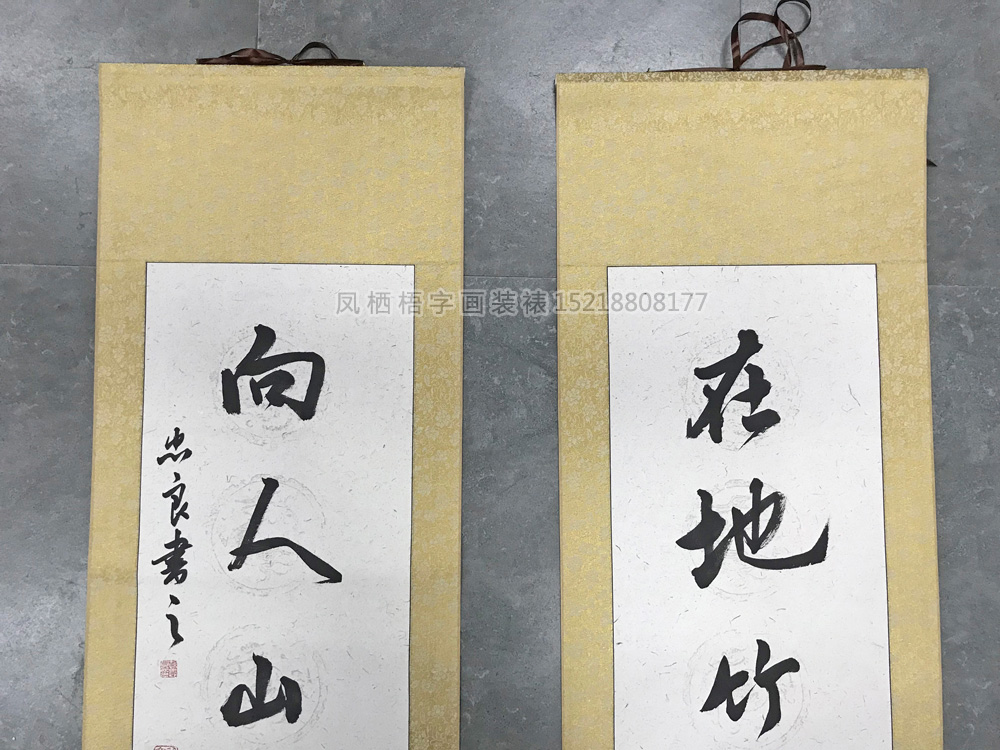 凤栖梧字画装裱15218808177
在地竹
向人山
忠良书之